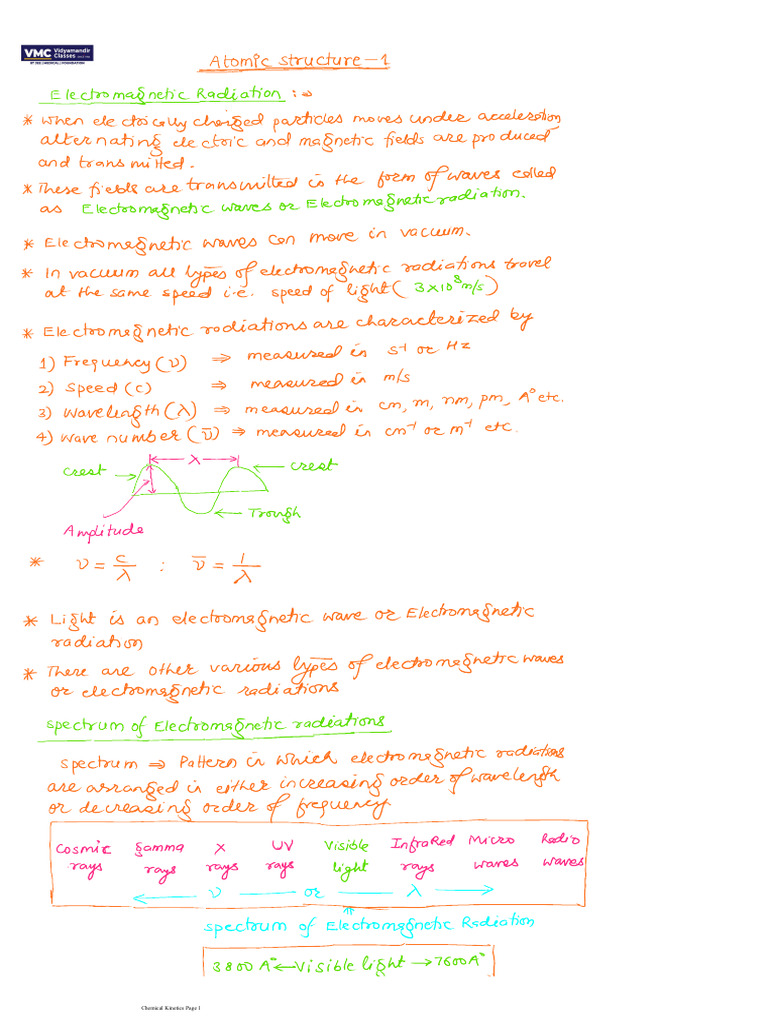 VMC Vidyamandir Classes
Atomic Structure-1
Electromagnetic Radiation :⇒
* When electrically charged particles moves under acceleration
alternating electric and magnetic fields are produced
and transmitted.
* These fields are transmitted in the form of waves called
as Electromagnetic waves or Electromagnetic radiation.
* Electromagnetic waves can move in vacuum.
* In vacuum all types of electromagnetic radiations travel
at the same speed i.e. speed of light ( 3×10⁸ m/s )
* Electromagnetic radiations are characterized by
1) Frequency (ν) ⇒ measured in s⁻¹ or Hz
2) Speed (c) ⇒ measured in m/s
3) Wavelength (λ) ⇒ measured in cm, m, nm, pm, A° etc.
4) Wave number (ν̅) ⇒ measured in cm⁻¹ or m⁻¹ etc.
λ
Crest
Crest
Trough
Amplitude
* ν = c/λ : ν̅ = 1/λ
* Light is an electromagnetic wave or Electromagnetic
radiation
* There are other various types of electromagnetic waves
or electromagnetic radiations
Spectrum of Electromagnetic radiations
Spectrum ⇒ Pattern in which electromagnetic radiations
are arranged in either increasing order of wavelength
or decreasing order of frequency
Cosmic rays gamma rays X rays UV rays Visible light InfraRed rays Micro waves Radio waves
← ν — or — λ →
Spectrum of Electromagnetic Radiation
3800 A° ← Visible light → 7600 A°
Chemical Kinetics Page 1